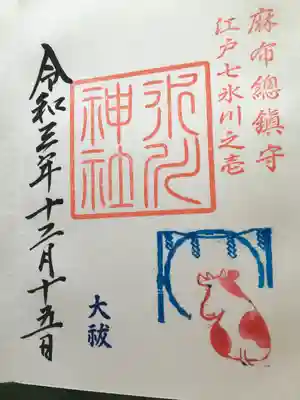 麻布總鎮守
江戸七氷川之壱
氷川神社
大祓
令和三年十二月十五日